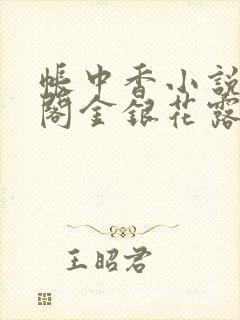 帳中香小說
閣金銀花露
王昭君